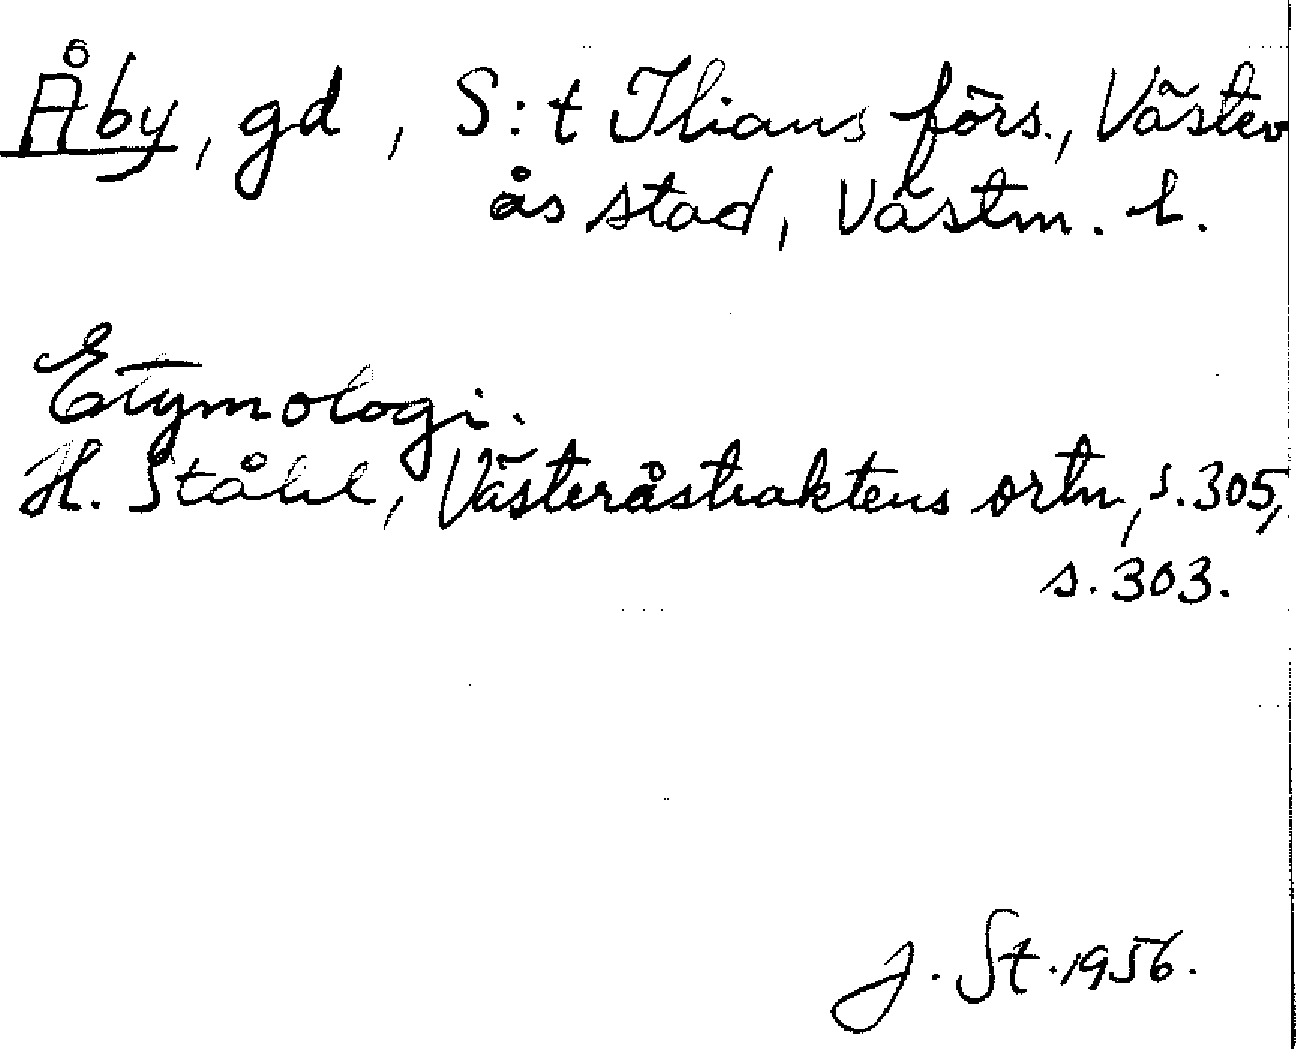 Åby, gd, S:t Ilians förs., Väster
ås stad, Västm. l.
Etymologi.
H. Ståhl, Västeråstraktens ortn, s. 305,
s. 303.
J. St. 1956.